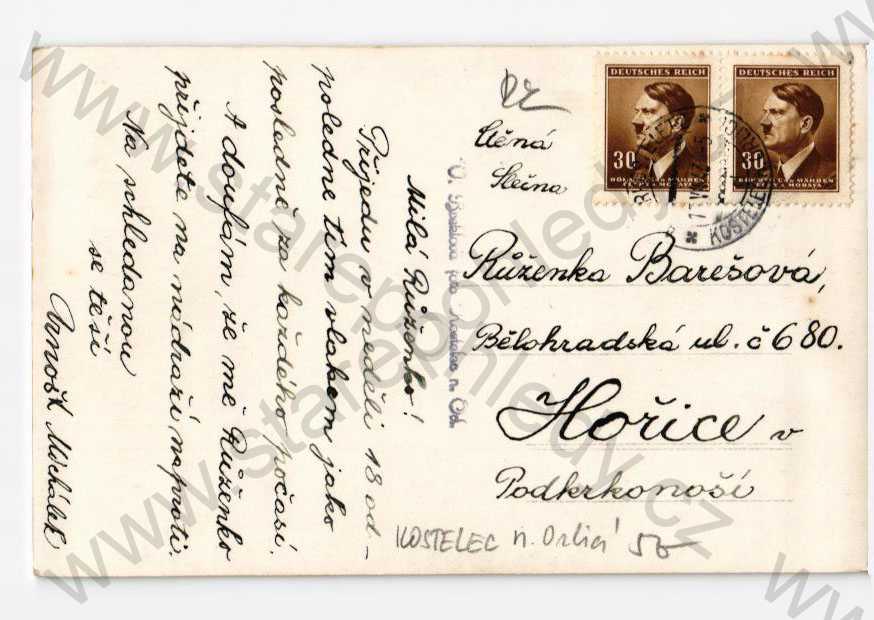 Milá Růženko!
Přijedu v neděli 18 od-
poledne tím vlakem jako
posledně za každého počasí.
A doufám, že mě Růženko
přijdete na nádraží naproti.
Na schledanou
se těší
Arnošt Michálek
Ctěná
Slečna
Růženka Barešová,
Bělohradská ul. č 680.
Hořice v
Podkrkonoší
KOSTELEC n. Orlicí 50
DEUTSCHES REICH
30
BÖHMEN u. MÄHREN
ČECHY A MORAVA
DEUTSCHES REICH
30
BÖHMEN u. MÄHREN
ČECHY A MORAVA
KOSTELEC
www.starepohledy.cz